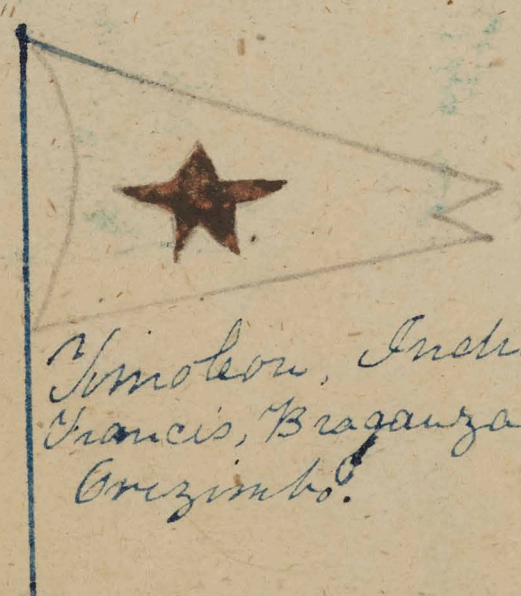 Timoleon, Indi
Francis, Braganza
Orizimbo.